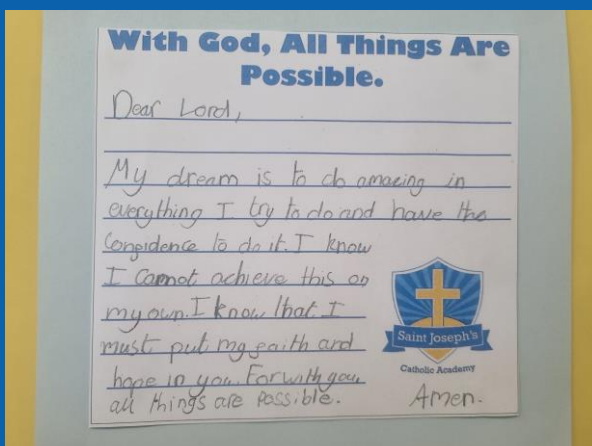 With God, All Things Are
Possible.
Dear Lord,
My dream is to do amazing in
everything I try to do and have the
confidence to do it. I know
I cannot achieve this on
my own. I know that I
must put my faith and
hope in you. For with you
all things are possible.
Saint Joseph's
Catholic Academy
Amen.